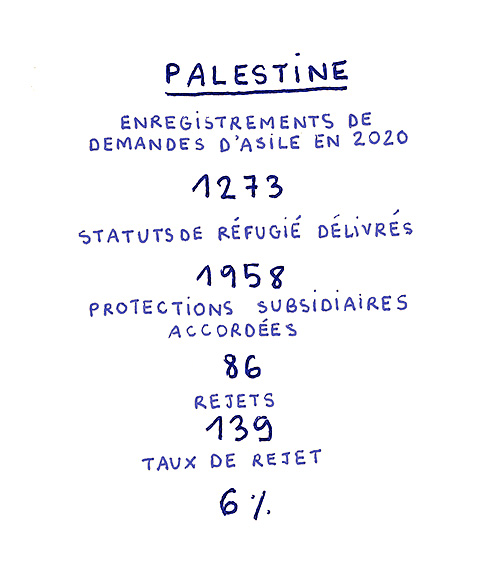 PALESTINE
ENREGISTREMENTS DE
DEMANDES D'ASILE EN 2020
1273
STATUTS DE RÉFUGIÉ DÉLIVRÉS
1958
PROTECTIONS SUBSIDIAIRES
ACCORDÉES
86
REJETS
139
TAUX DE REJET
6 %